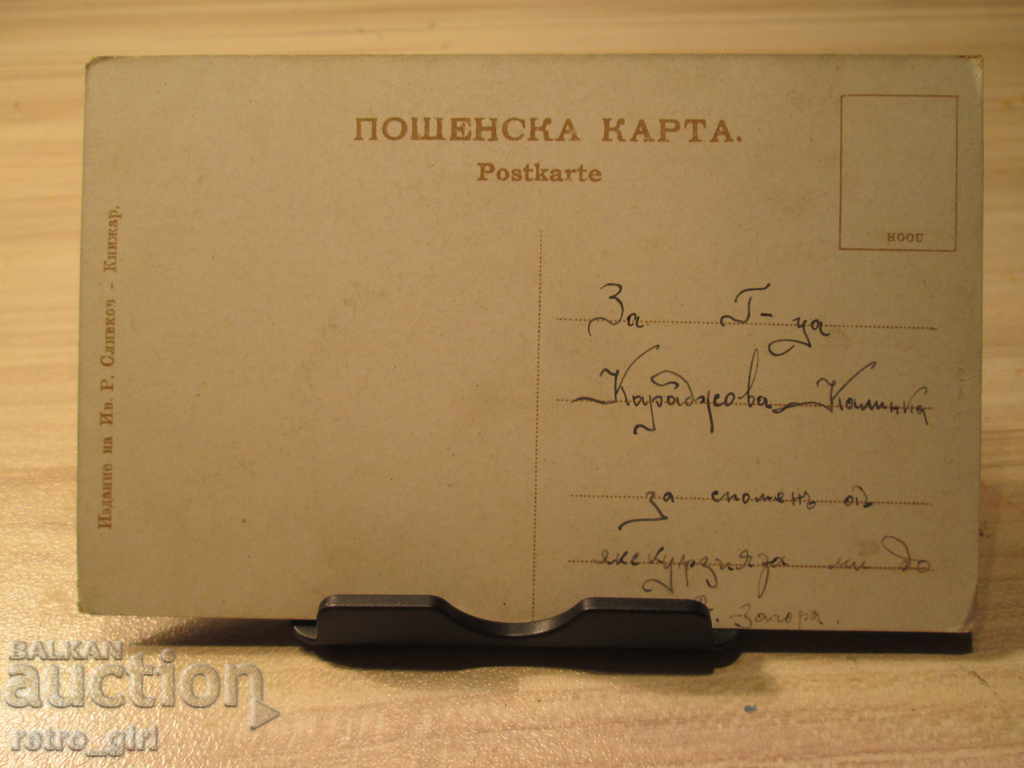 ПОЩЕНСКА КАРТА.
Postkarte
НООU
Издание на Ив. Р. Сливков - Книжар.
За Г-ца
Караджова Калинка
за споменъ отъ
екскурзията ми до
Ст. Загора.
BALKAN
auction
retro_girl